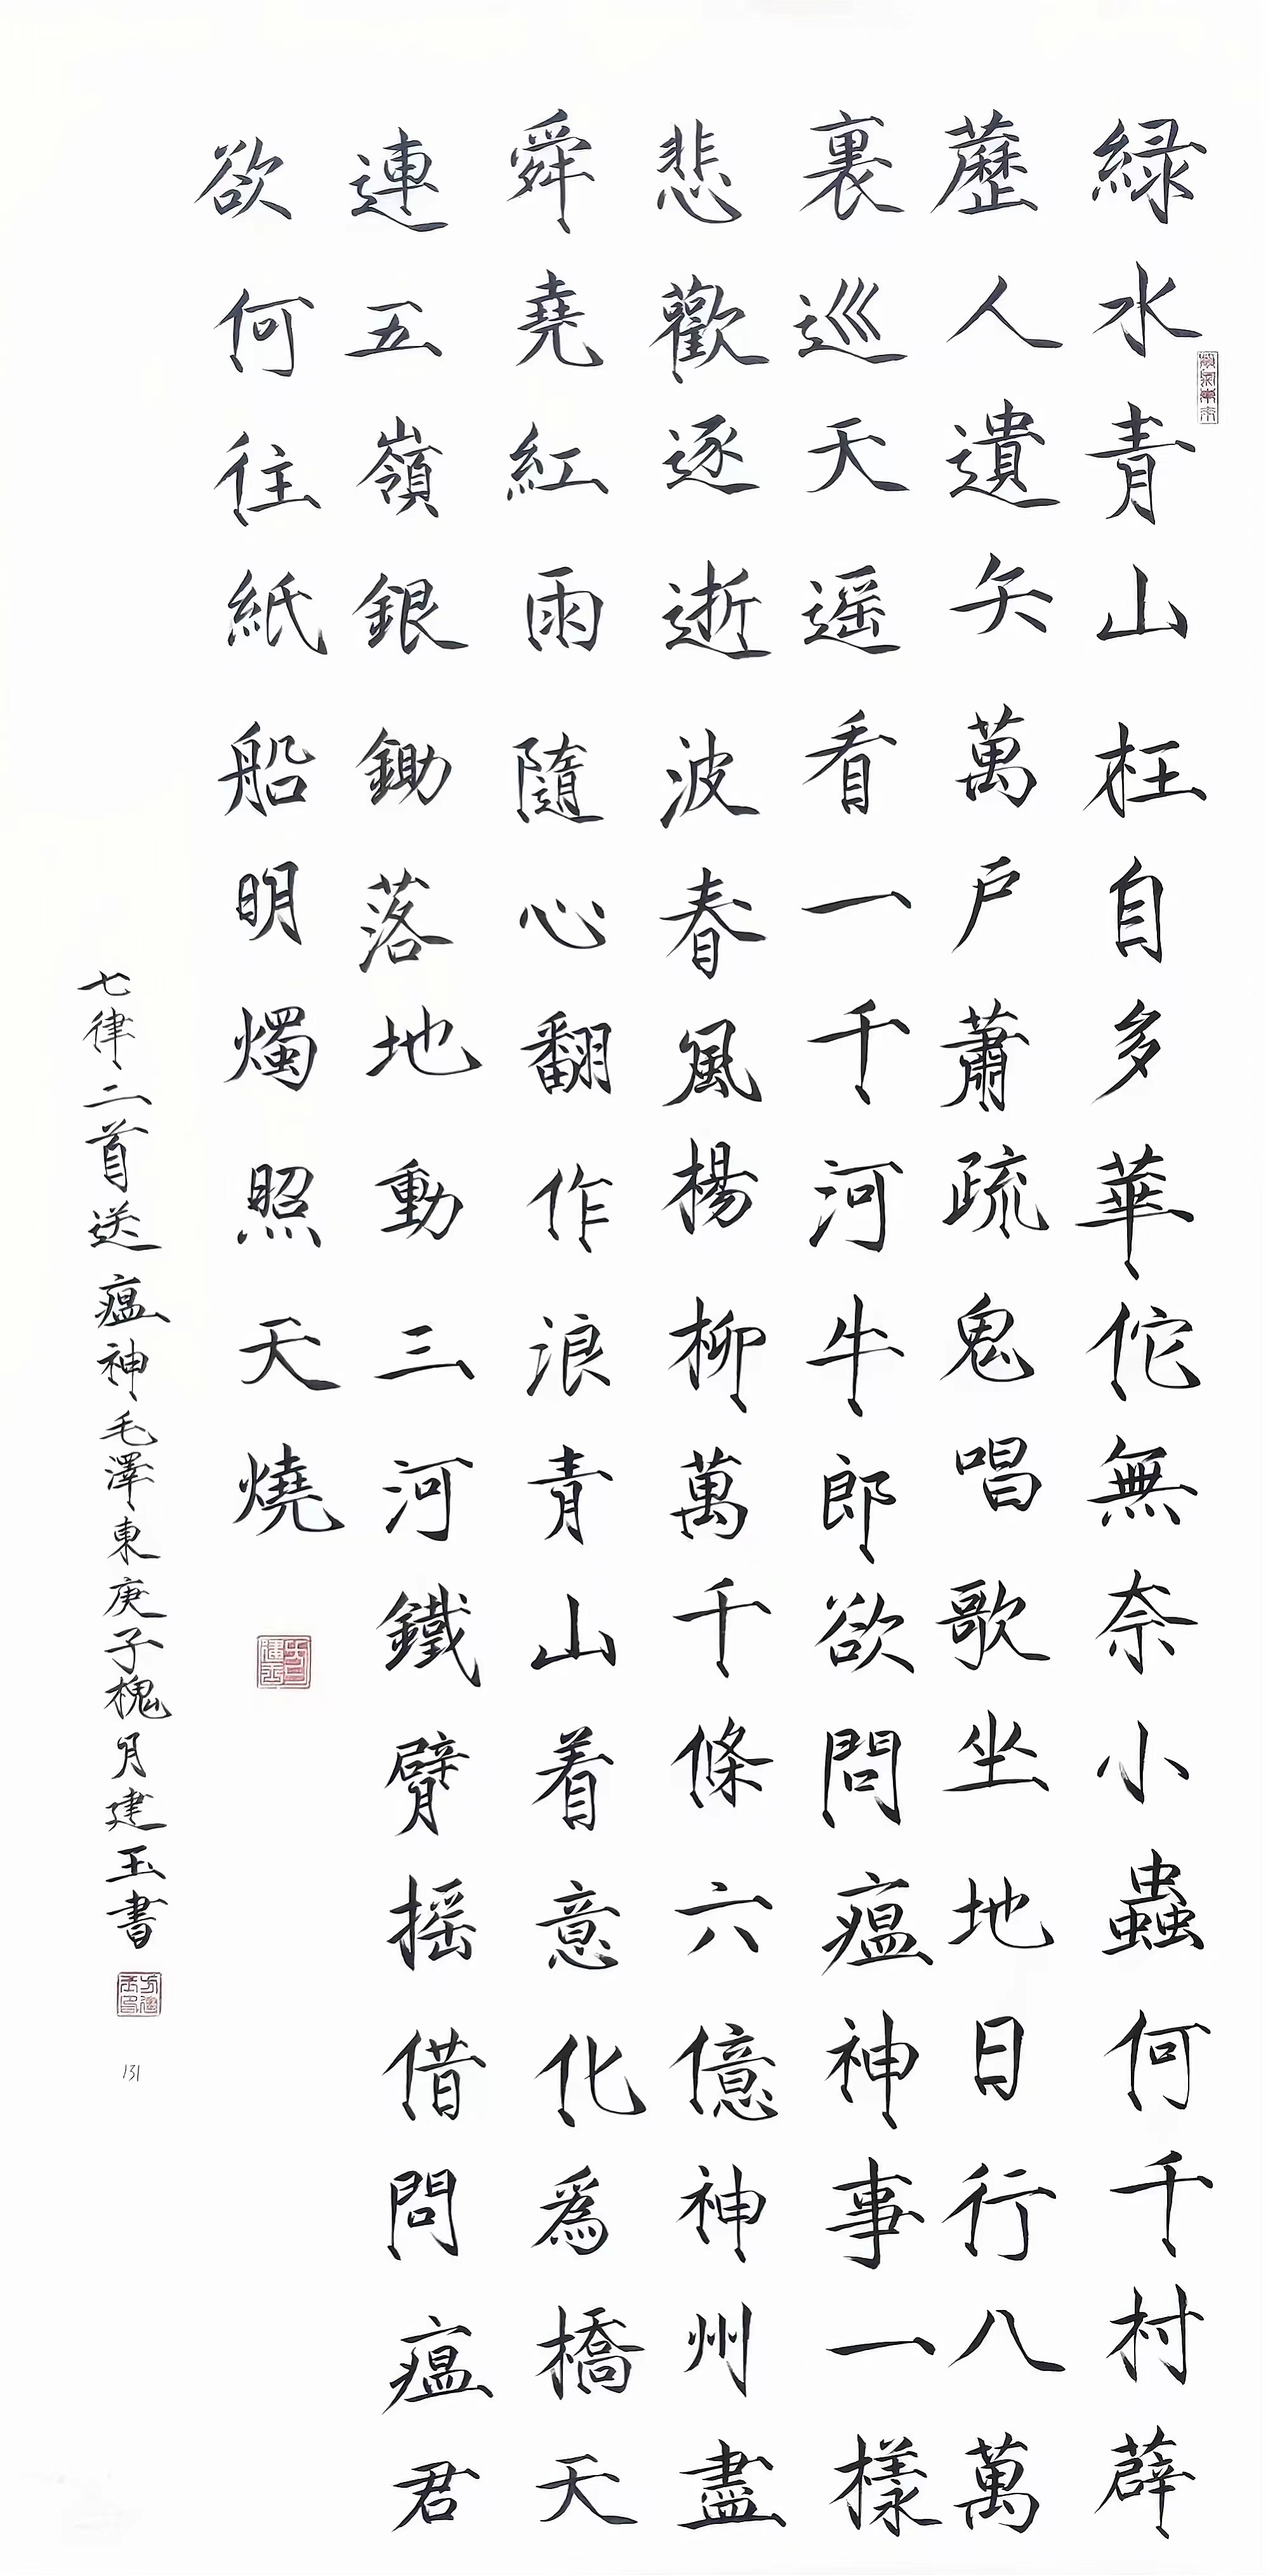 緑水青山枉自多華佗無奈小蟲何千村薜
藶人遺矢萬戶蕭疏鬼唱歌坐地日行八萬
裏巡天遥看一千河牛郎欲問瘟神事一樣
悲歡逐逝波春風楊柳萬千條六億神州盡
舜堯紅雨隨心翻作浪青山着意化爲橋天
連五嶺銀鋤落地動三河鐵臂摇借問瘟君
欲何往紙船明燭照天燒
七律二首送瘟神毛澤東庚子槐月建玉書
131